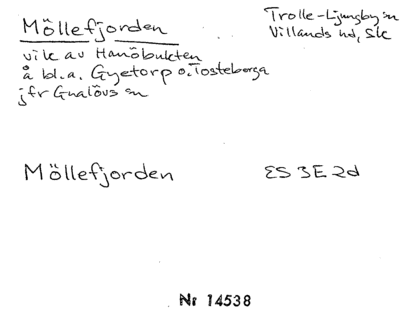 Möllefjorden
Trolle-Ljungby sn
Villands hd, Sk
vik av Hanöbukten
å bl.a. Gyetorp o. Tosteberga
jfr Gualövs sn
Möllefjorden ES 3E 2d
Nr 14538